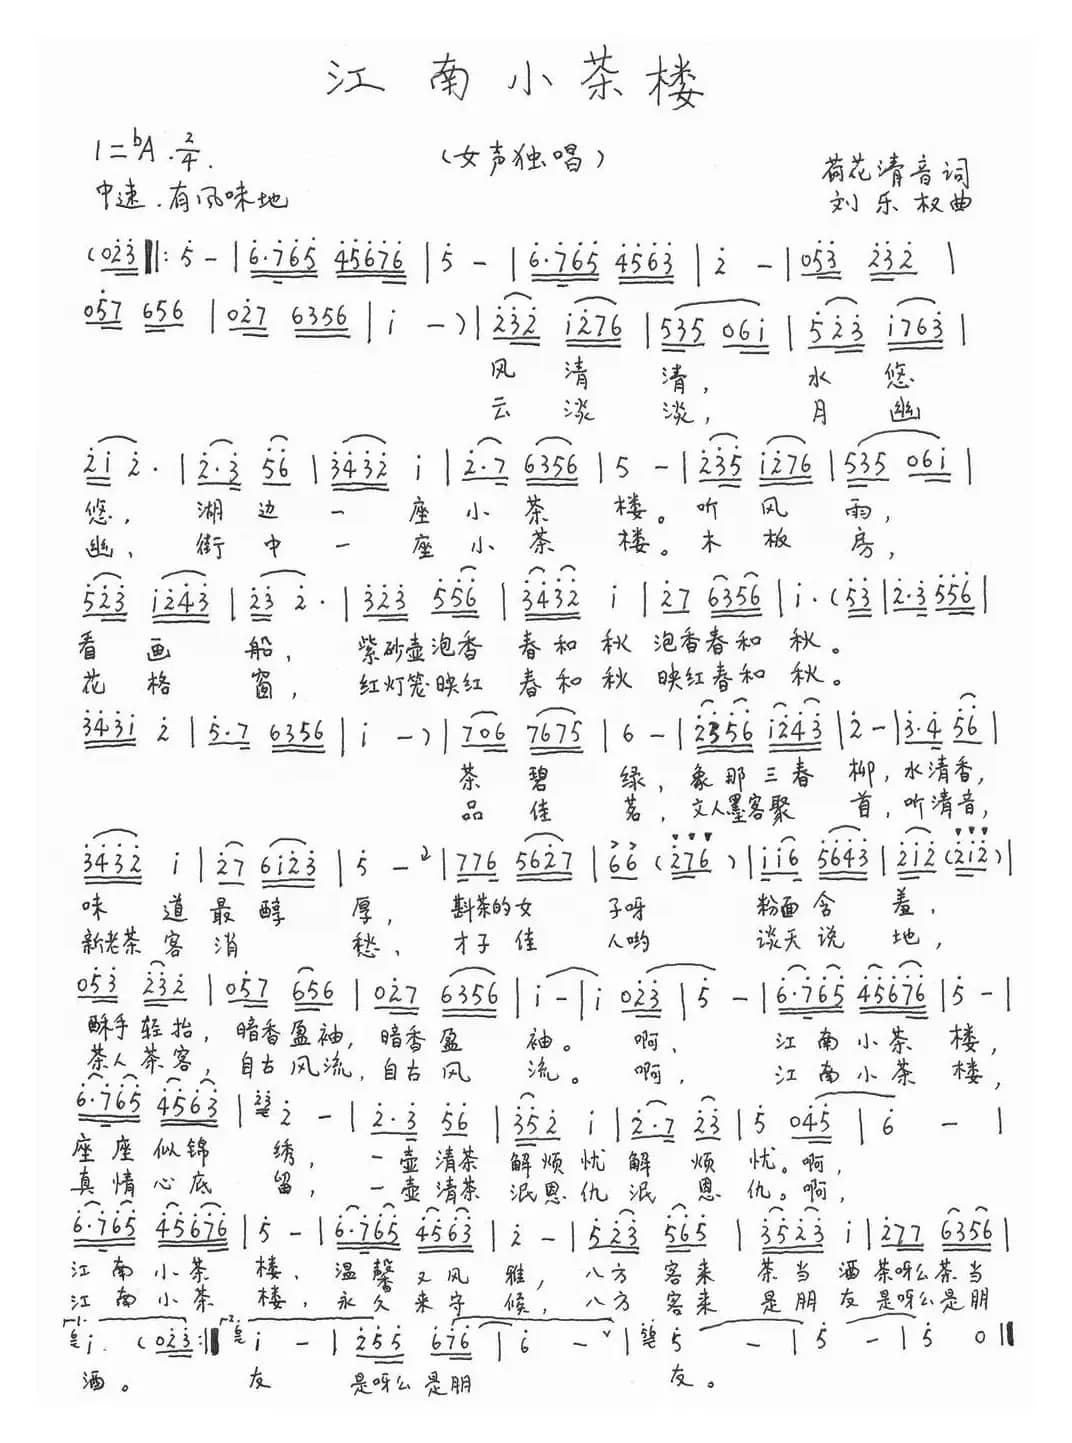 江南小茶楼
1=♭A 2/4
(女声独唱)
荷花清音词
中速.有风味地
刘乐权曲
(023‖: 5 - | 6·765 45676 | 5 - | 6·765 4563 | 2 - | 053 232 |
057 656 | 027 6356 | i - ) | 232 i276 | 535 06i | 523 i763 |
风 清 清, 水 悠
云 淡 淡, 月 幽
2i 2· | 2·3 56 | 3432 i | 2·7 6356 | 5 - | 235 i276 | 535 06i |
悠, 湖边一座小茶楼。听风雨,
幽、街中一座小茶楼。木板房,
523 i243 | 23 2· | 323 556 | 3432 i | 27 6356 | i·(53 | 2·3 556 |
看画船, 紫砂壶泡香 春和秋 泡香春和秋。
花格窗, 红灯笼映红 春和秋 映红春和秋。
343i 2 | 5·7 6356 | i - ) | 706 7675 | 6 - | 2356 i243 | 2 - | 3·4 56 |
茶碧绿, 象那三春柳, 水清香,
品佳茗, 文人墨客聚首, 听清音,
3432 i | 27 6i23 | 5 - | 776 5627 | 66 (276) | ii6 5643 | 2i2 (2i2) |
味道最醇厚, 斟茶的女子呀 粉面含羞,
新老茶客消愁、才子佳人哟 谈天说地,
053 232 | 057 656 | 027 6356 | i - | i 023 | 5 - | 6·765 45676 | 5 - |
酥手轻抬, 暗香盈袖, 暗香盈袖。啊, 江南小茶楼,
茶人茶客, 自古风流, 自古风流。啊, 江南小茶楼,
6·765 4563 | 2 - | 2·3 56 | 352 i | 2·7 23 | 5 045 | 6 - |
座座似锦绣, 一壶清茶解烦忧解烦忧。啊,
真情心底留, 一壶清茶泯恩仇泯恩仇。啊,
6·765 45676 | 5 - | 6·765 4563 | 2 - | 523 565 | 3523 i | 277 6356 |
江南小茶楼、温馨又风雅, 八方客来 茶当酒茶呀么茶当
江南小茶楼, 永久来守候, 八方客来 是朋友是呀么是朋
i. (023 :‖ i - | 255 676 | 6 - | 5 - | 5 - | 5 0 ‖
酒。 友 是呀么是朋 友。